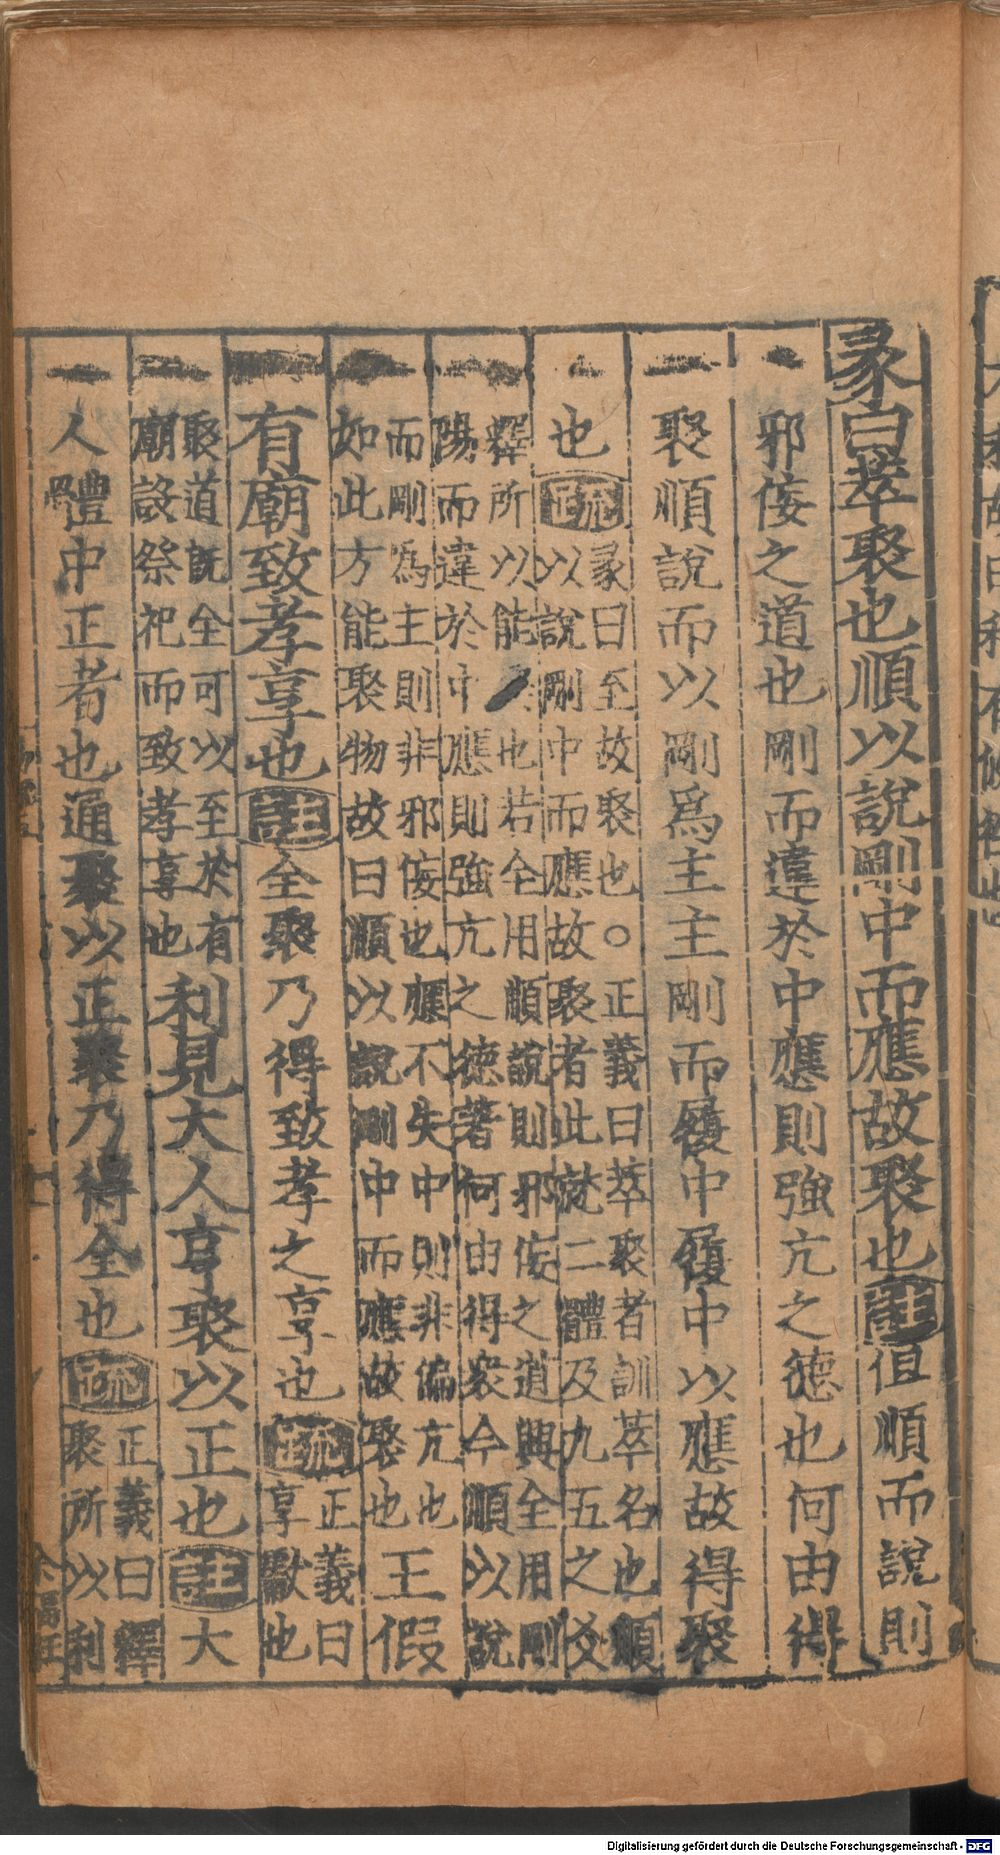 彖曰萃聚也順以說剛中而應故聚也註但順而說則
邪佞之道也剛而違於中應則強亢之德也何由得
聚順說而以剛爲主主剛而履中履中以應故得聚
也疏
彖曰至故聚也○正義曰萃聚者訓萃名也順
以說剛中而應故聚者此就二體及九五之爻
釋所以能也若全用順說則邪佞之道興全用剛
陽而違於中應則強亢之德著何由得衆今順以說
而剛爲主則非邪佞也應不失中則非偏亢也
如此方能聚物故曰順以說剛中而應故聚也
王假
有廟致孝享也註全聚乃得致孝之享也疏
正義曰
享獻也
聚道旣全可以至於有
廟設祭祀而致孝享也
利見大人亨聚以正也註大
人體中正者也通聚以正聚乃得全也疏
正義曰釋
聚所以利
Digitalisierung gefördert durch die Deutsche Forschungsgemeinschaft - DFG